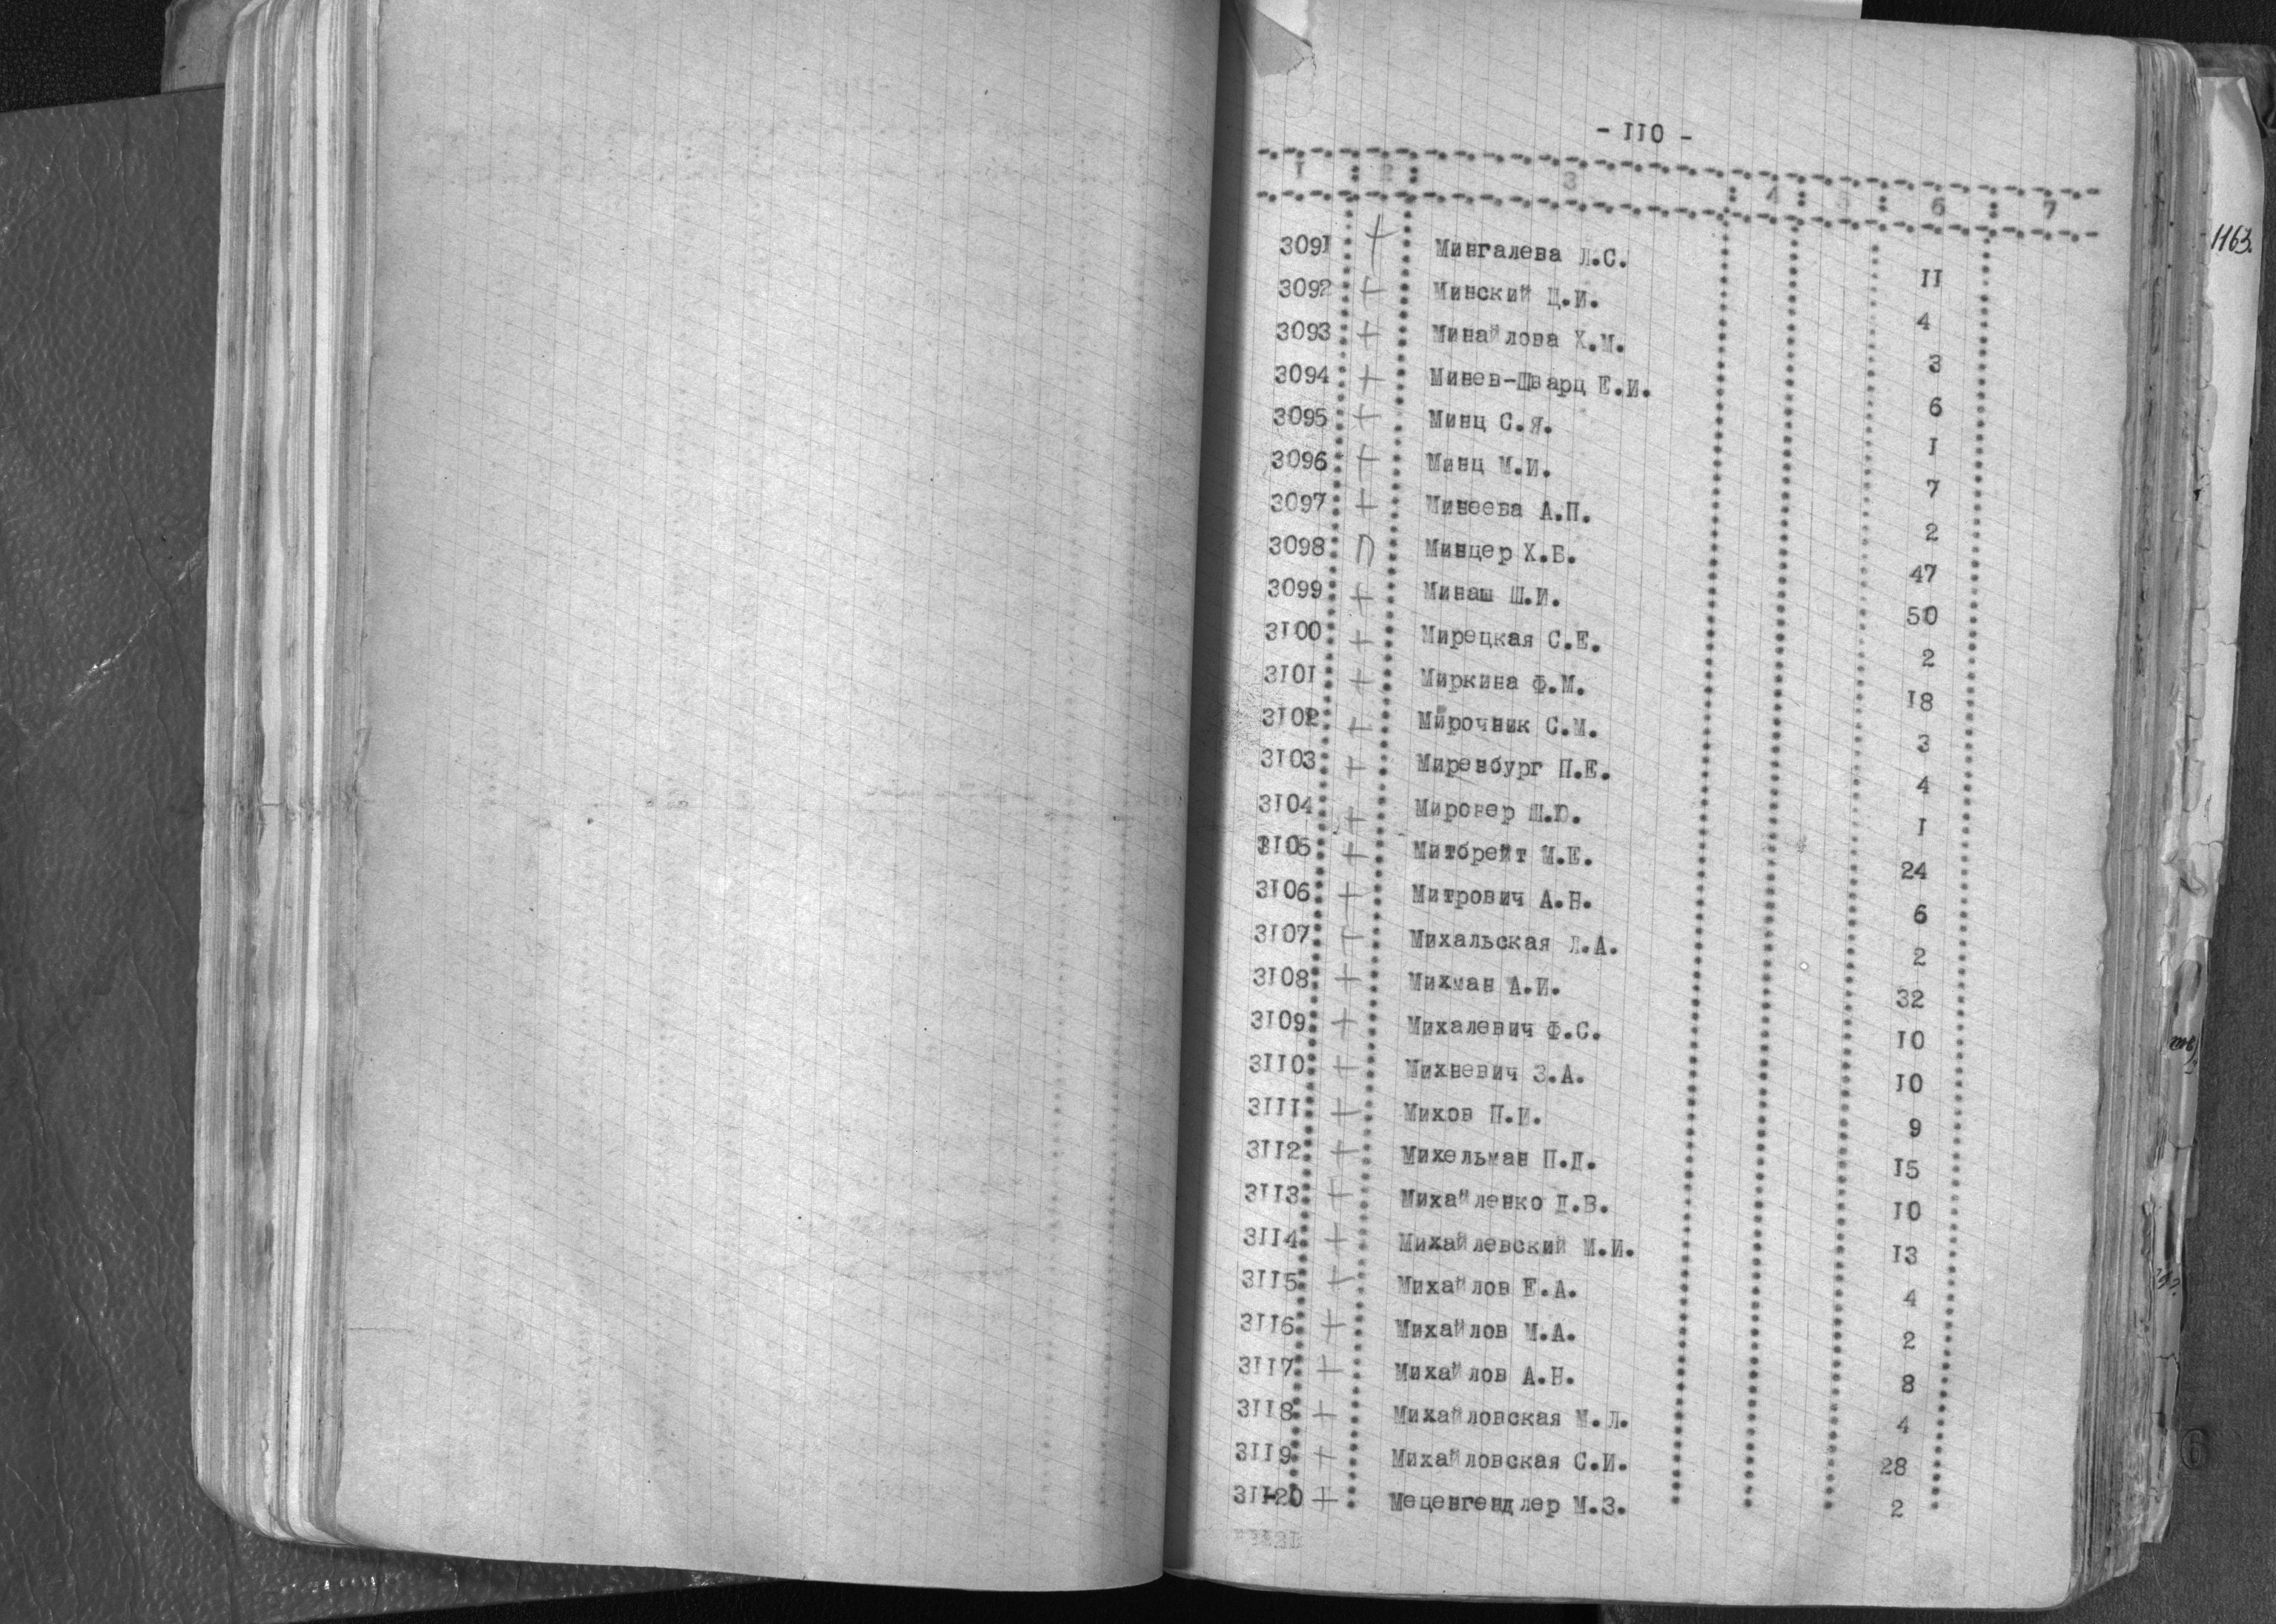 - IIO -
I : 2 : 3 : 4 : : 6 : 7
1163.
3091 + Мингалева Л.С. II
3092 + Минский Ц.И. 4
3093 + Минайлова Х.М. 3
3094 + Минев-Шварц Е.И. 6
3095 + Минц С.Я. I
3096 + Минц М.И. 7
3097 + Минеева А.П. 2
3098 П Минцер Х.Б. 47
3099 + Минаш Ш.И. 50
3I00 + Мирецкая С.Е. 2
3I0I + Миркина Ф.М. I8
3I02 + Мирочник С.М. 3
3I03 + Миренбург П.Е. 4
3I04 + Мировер Ш.Ю. I
3I05 + Митбрейт М.Е. 24
3I06 + Митрович А.Н. 6
3I07 + Михальская Л.А. 2
3I08 + Михман А.И. 32
3I09 + Михалевич Ф.С. I0
3II0 + Михневич З.А. I0
3III + Михов П.И. 9
3II2 + Михельман П.Д. I5
3II3 + Михайленко Д.В. I0
3II4 + Михайлевский М.И. I3
3II5 + Михайлов Е.А. 4
3II6 + Михайлов М.А. 2
3II7 + Михайлов А.Н. 8
3II8 + Михайловская М.Л. 4
3II9 + Михайловская С.И. 28
3II20 + Меценгендлер М.З. 2